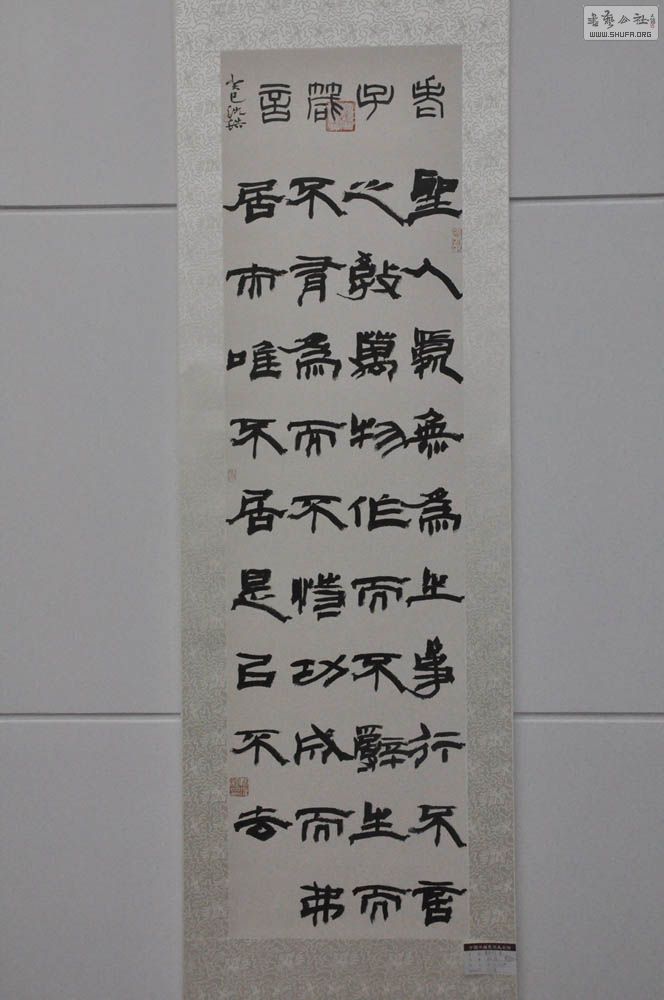 書藝公社
WWW.SHUFA.ORG
老子箴言
聖人處無為之事行不言
之教萬物作而不辭生而
不有為而不恃功成而弗
居夫唯不居是以不去
癸巳沈浩